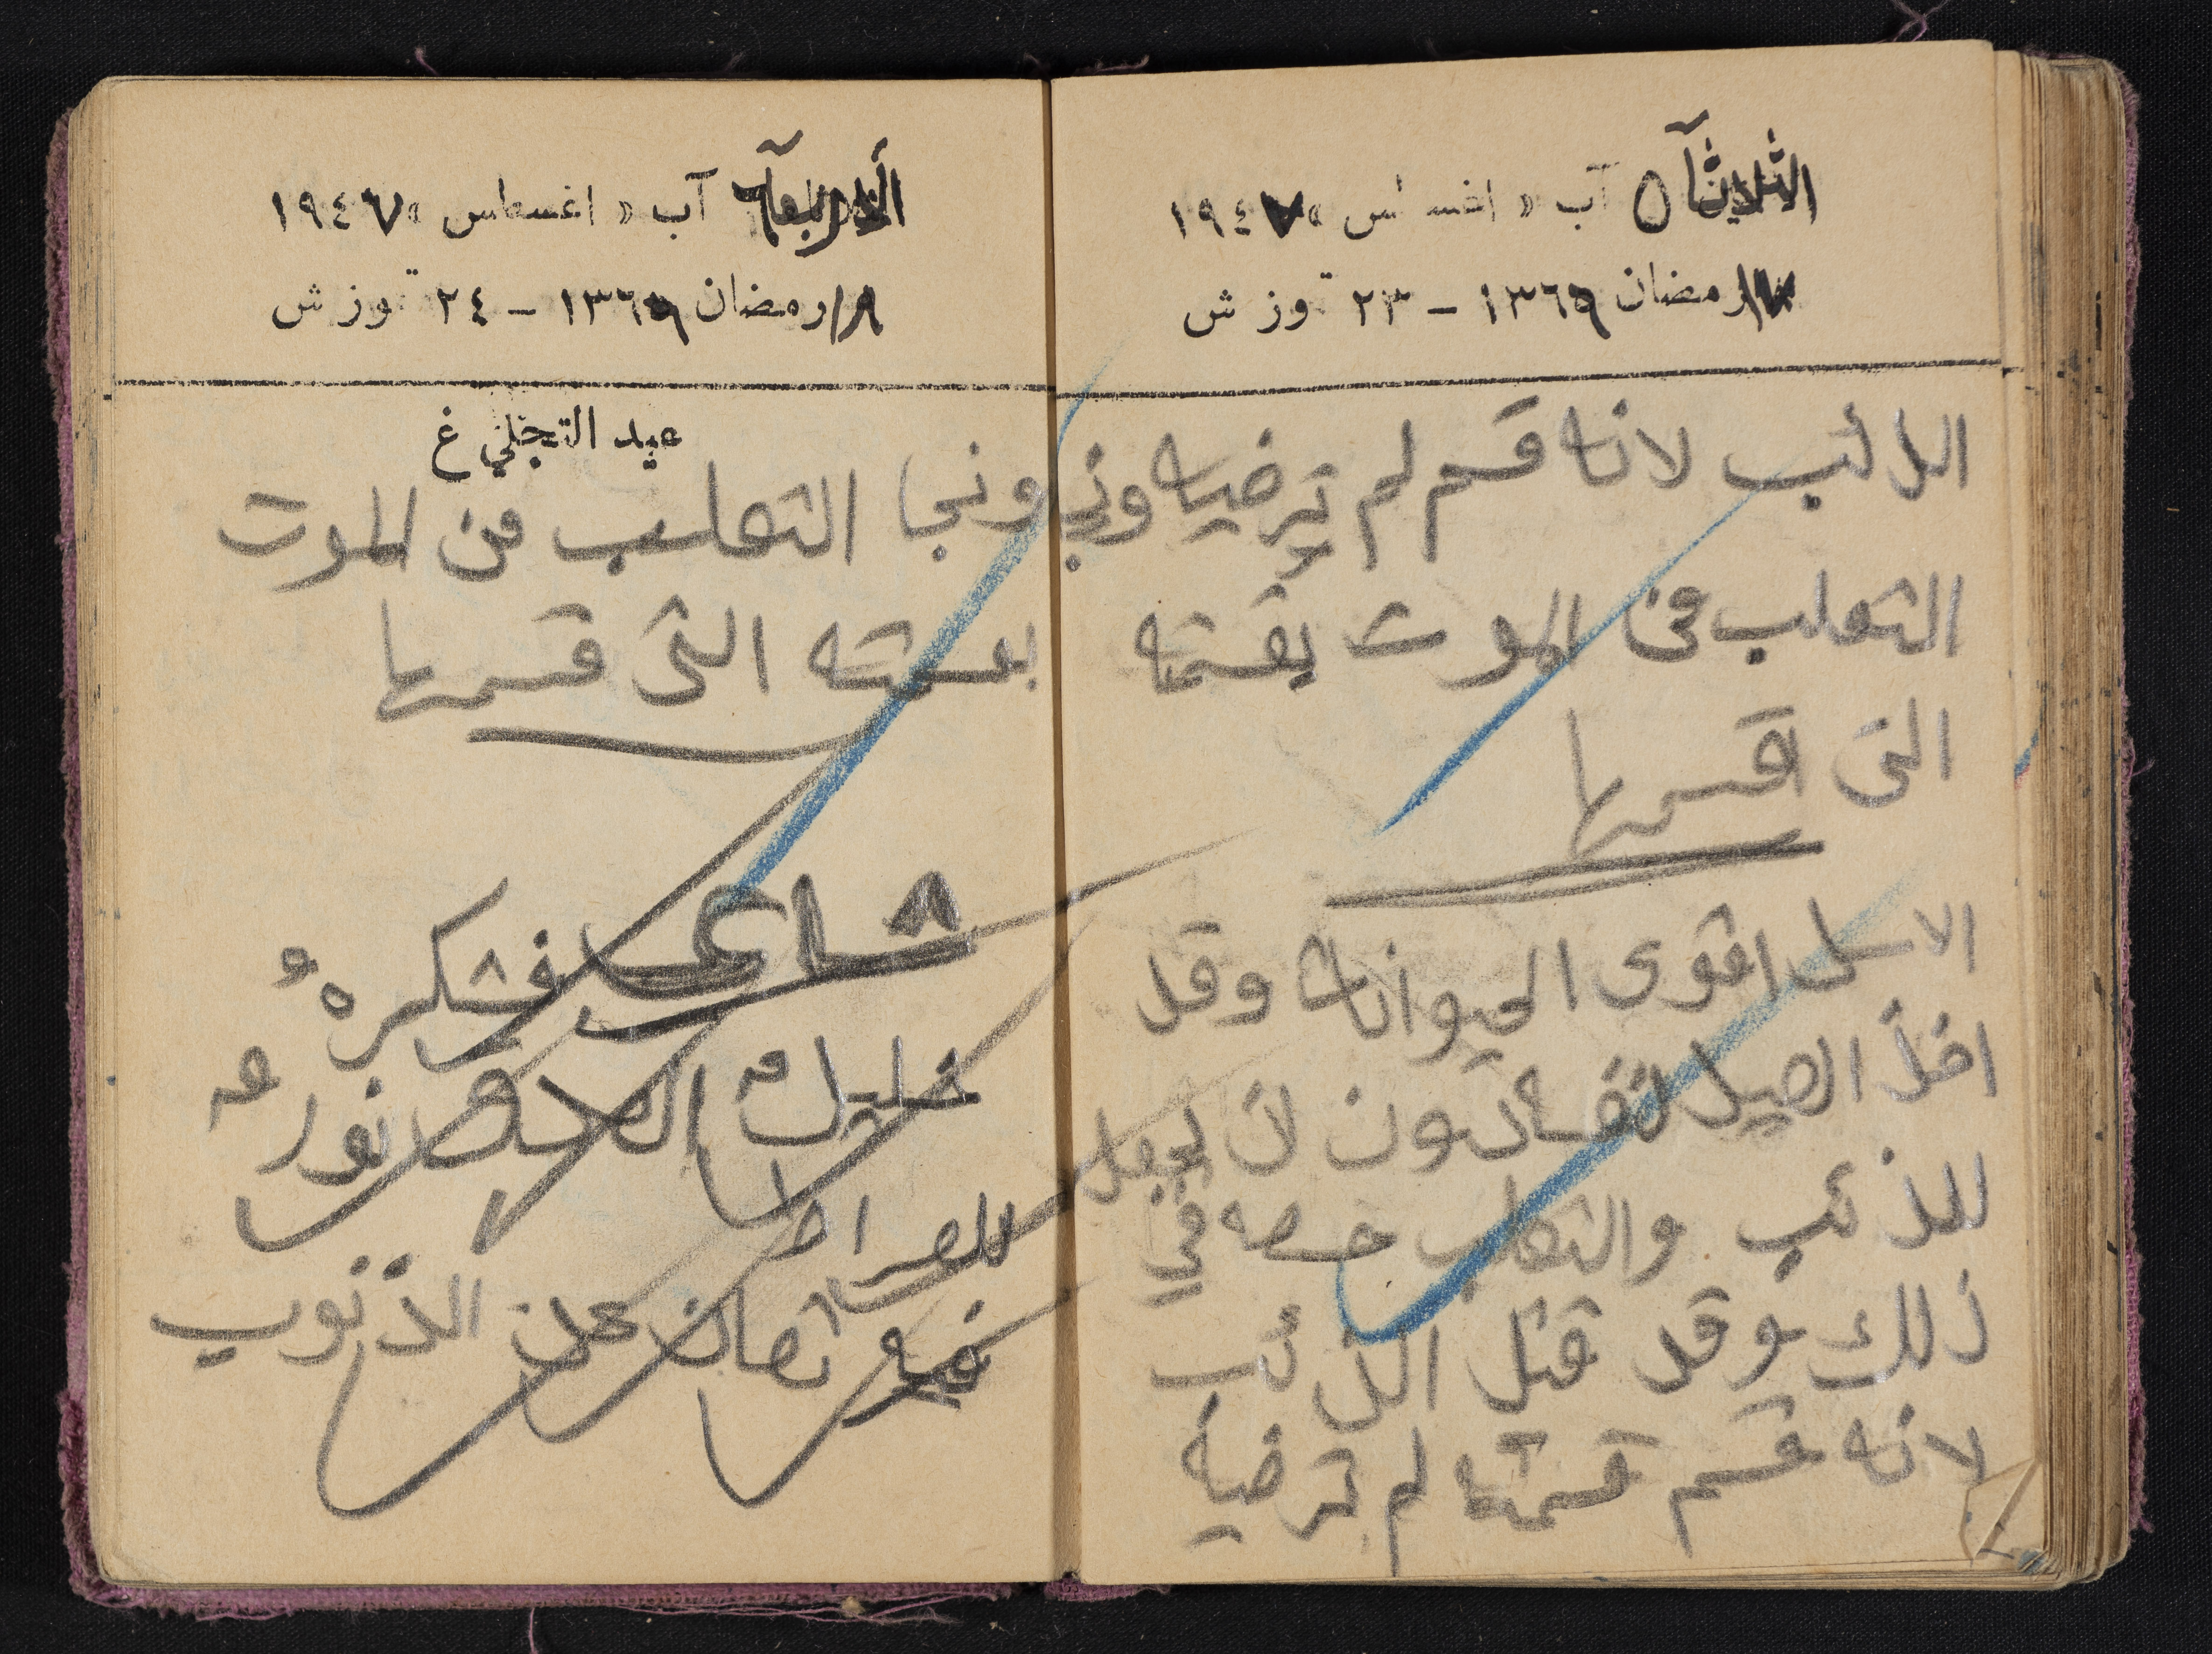 الثلاثآ ٥ آب « اغسطس » ١٩٤٧
١٧ رمضان ١٣٦٦ – ٢٣ تموز ش
الذئب لانه قسم لم ترضيه وني
الثعلب من الموت بقسمته
التي اقسمها
الاسد اقوى الحيوانات وقد
اخذ الصيد لان لجعل
للذئب والثعلب حصه في
ذلك وقد قتل الذئب
لانه قسم قسمته لم ترضيه
الاربعآ ٦ آب « اغسطس » ١٩٤٧
١٨ رمضان ١٣٦٦ – ٢٤ تموز ش
عيد التجلي غ
ونجا الثعلب من الموت
بقسمته التي قسمها
شاعر فشكره
خليل
للصراط
عن الذنوب